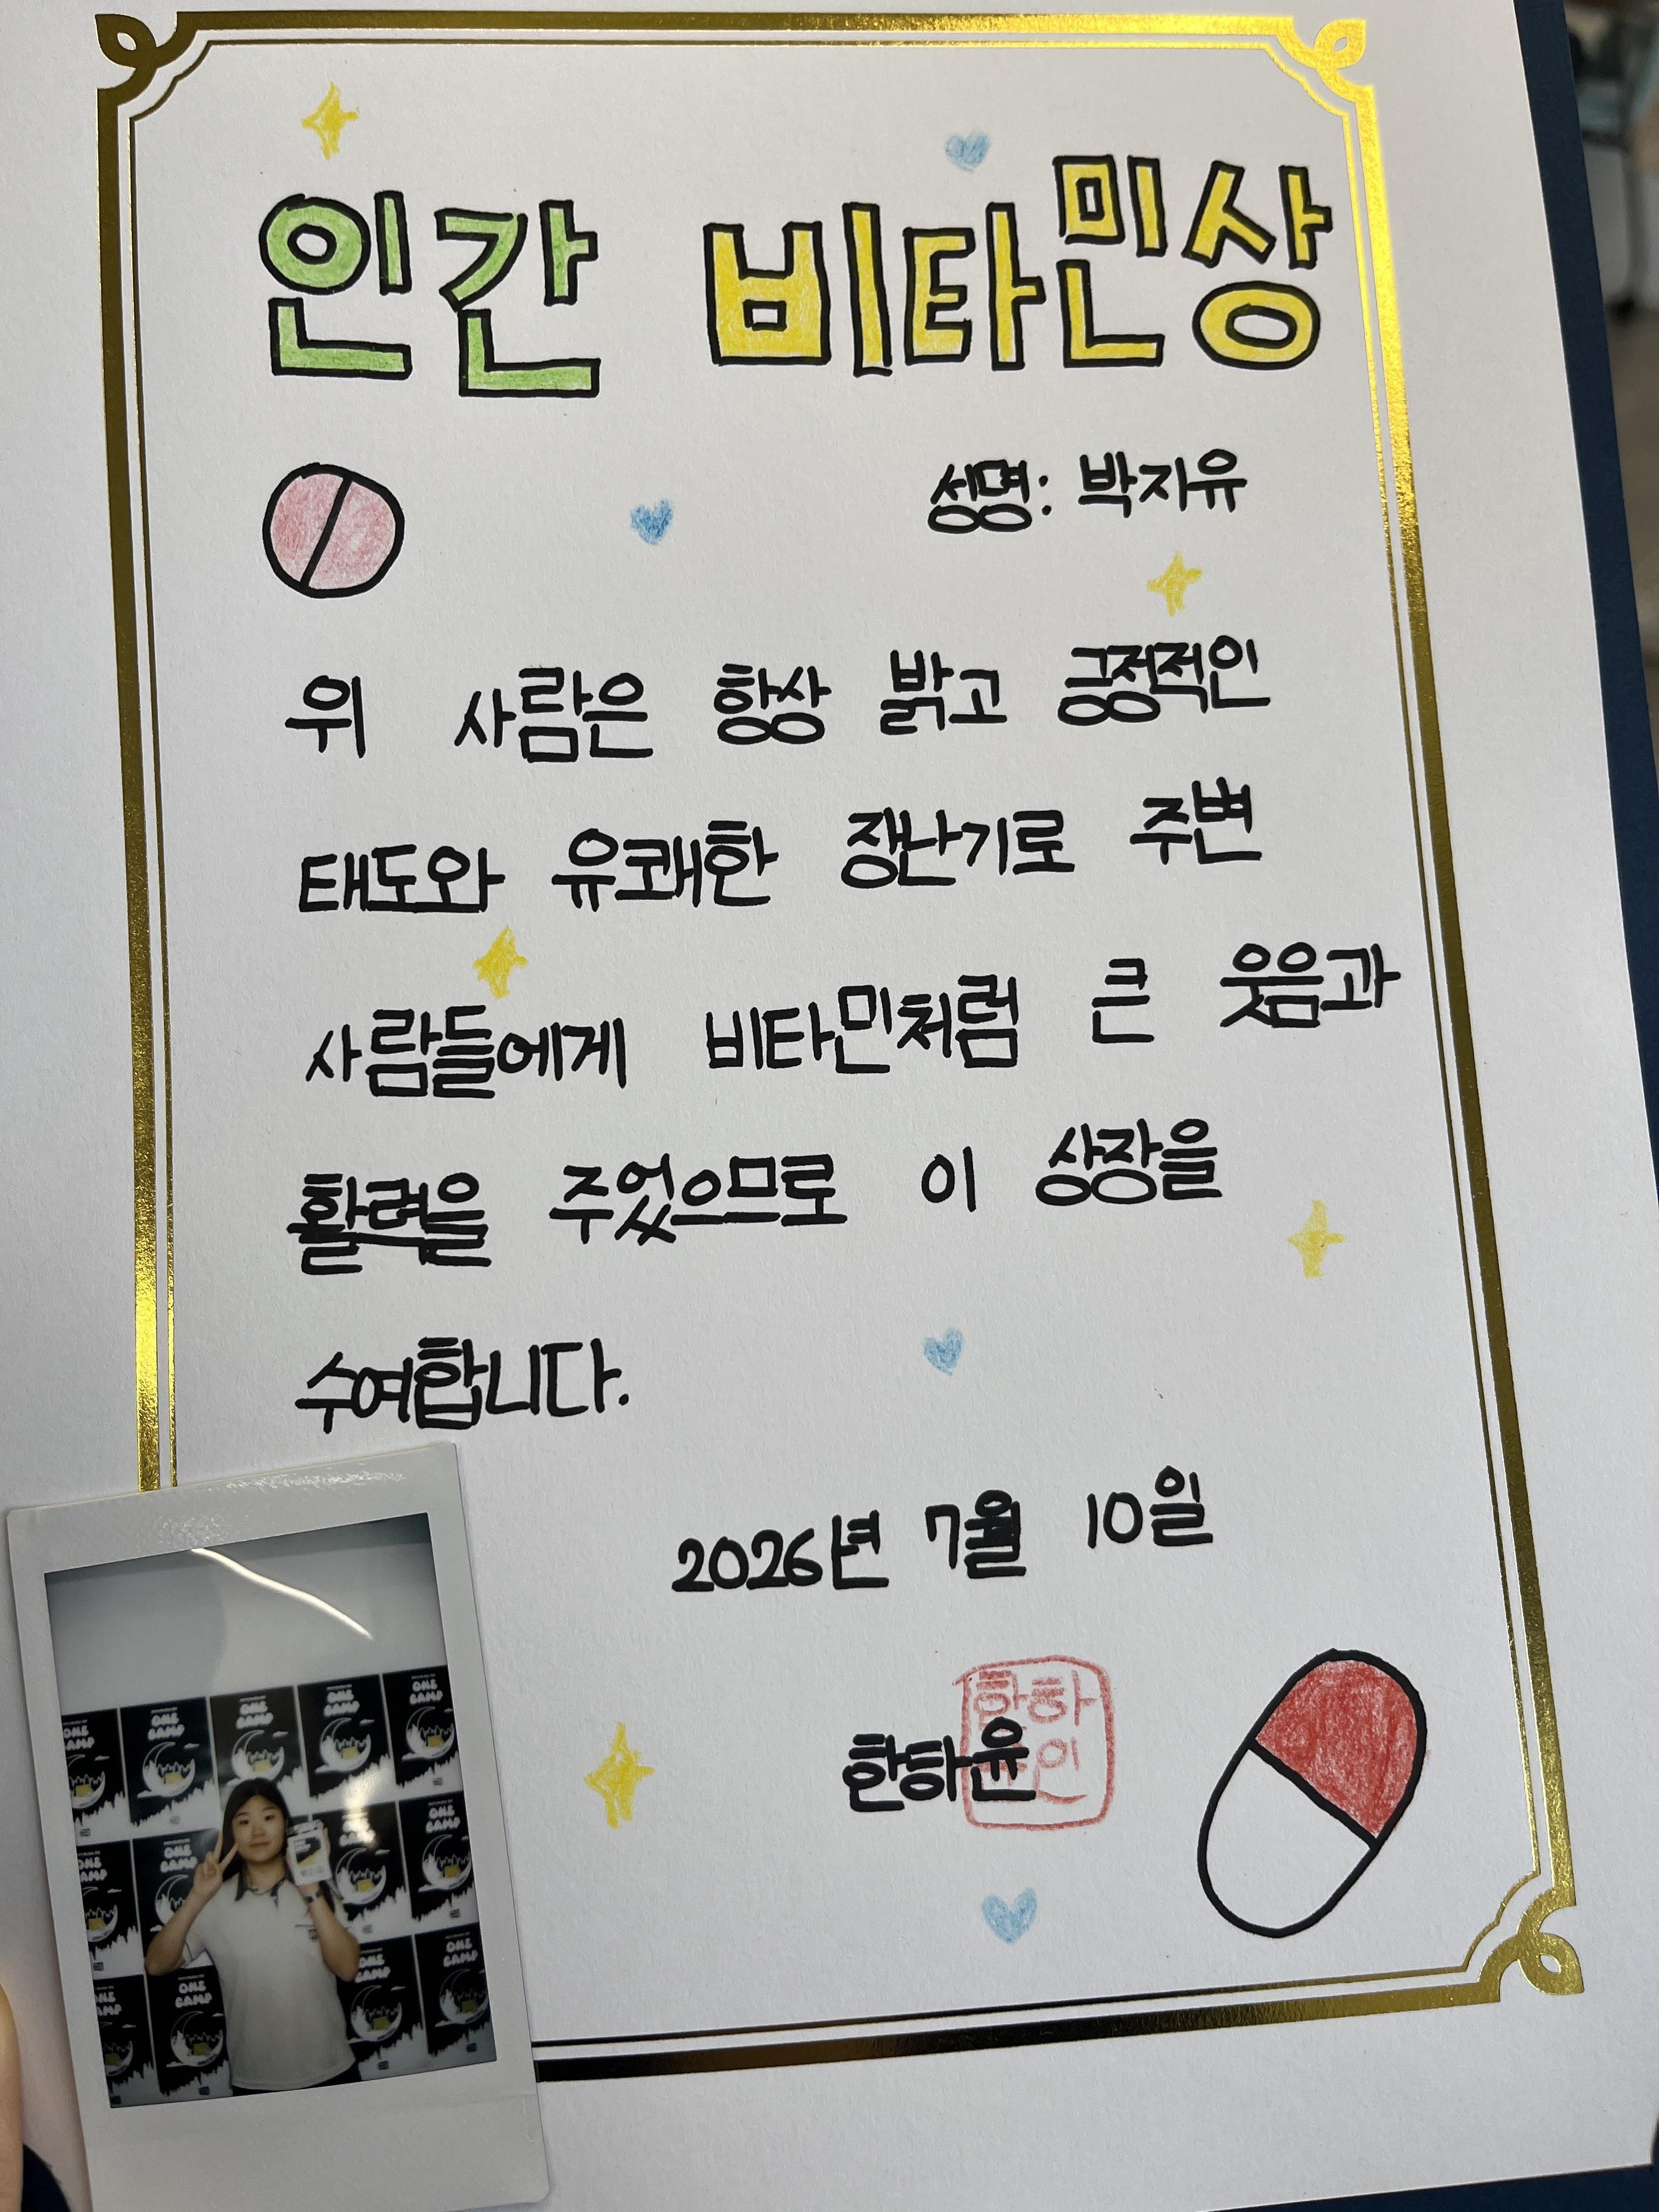 인간 비타민상
성명: 박지유
위 사람은 항상 밝고 긍정적인
태도와 유쾌한 장난기로 주변
사람들에게 비타민처럼 큰 웃음과
활력을 주었으므로 이 상장을
수여합니다.
2026년 7월 10일
한하윤
한하
윤인
ONE CAMP
ONE CAMP
ONE CAMP
ONE CAMP
ONE CAMP
ONE CAMP
ONE CAMP
ONE CAMP
ONE CAMP
ONE CAMP
ONE CAMP
ONE CAMP
ONE CAMP